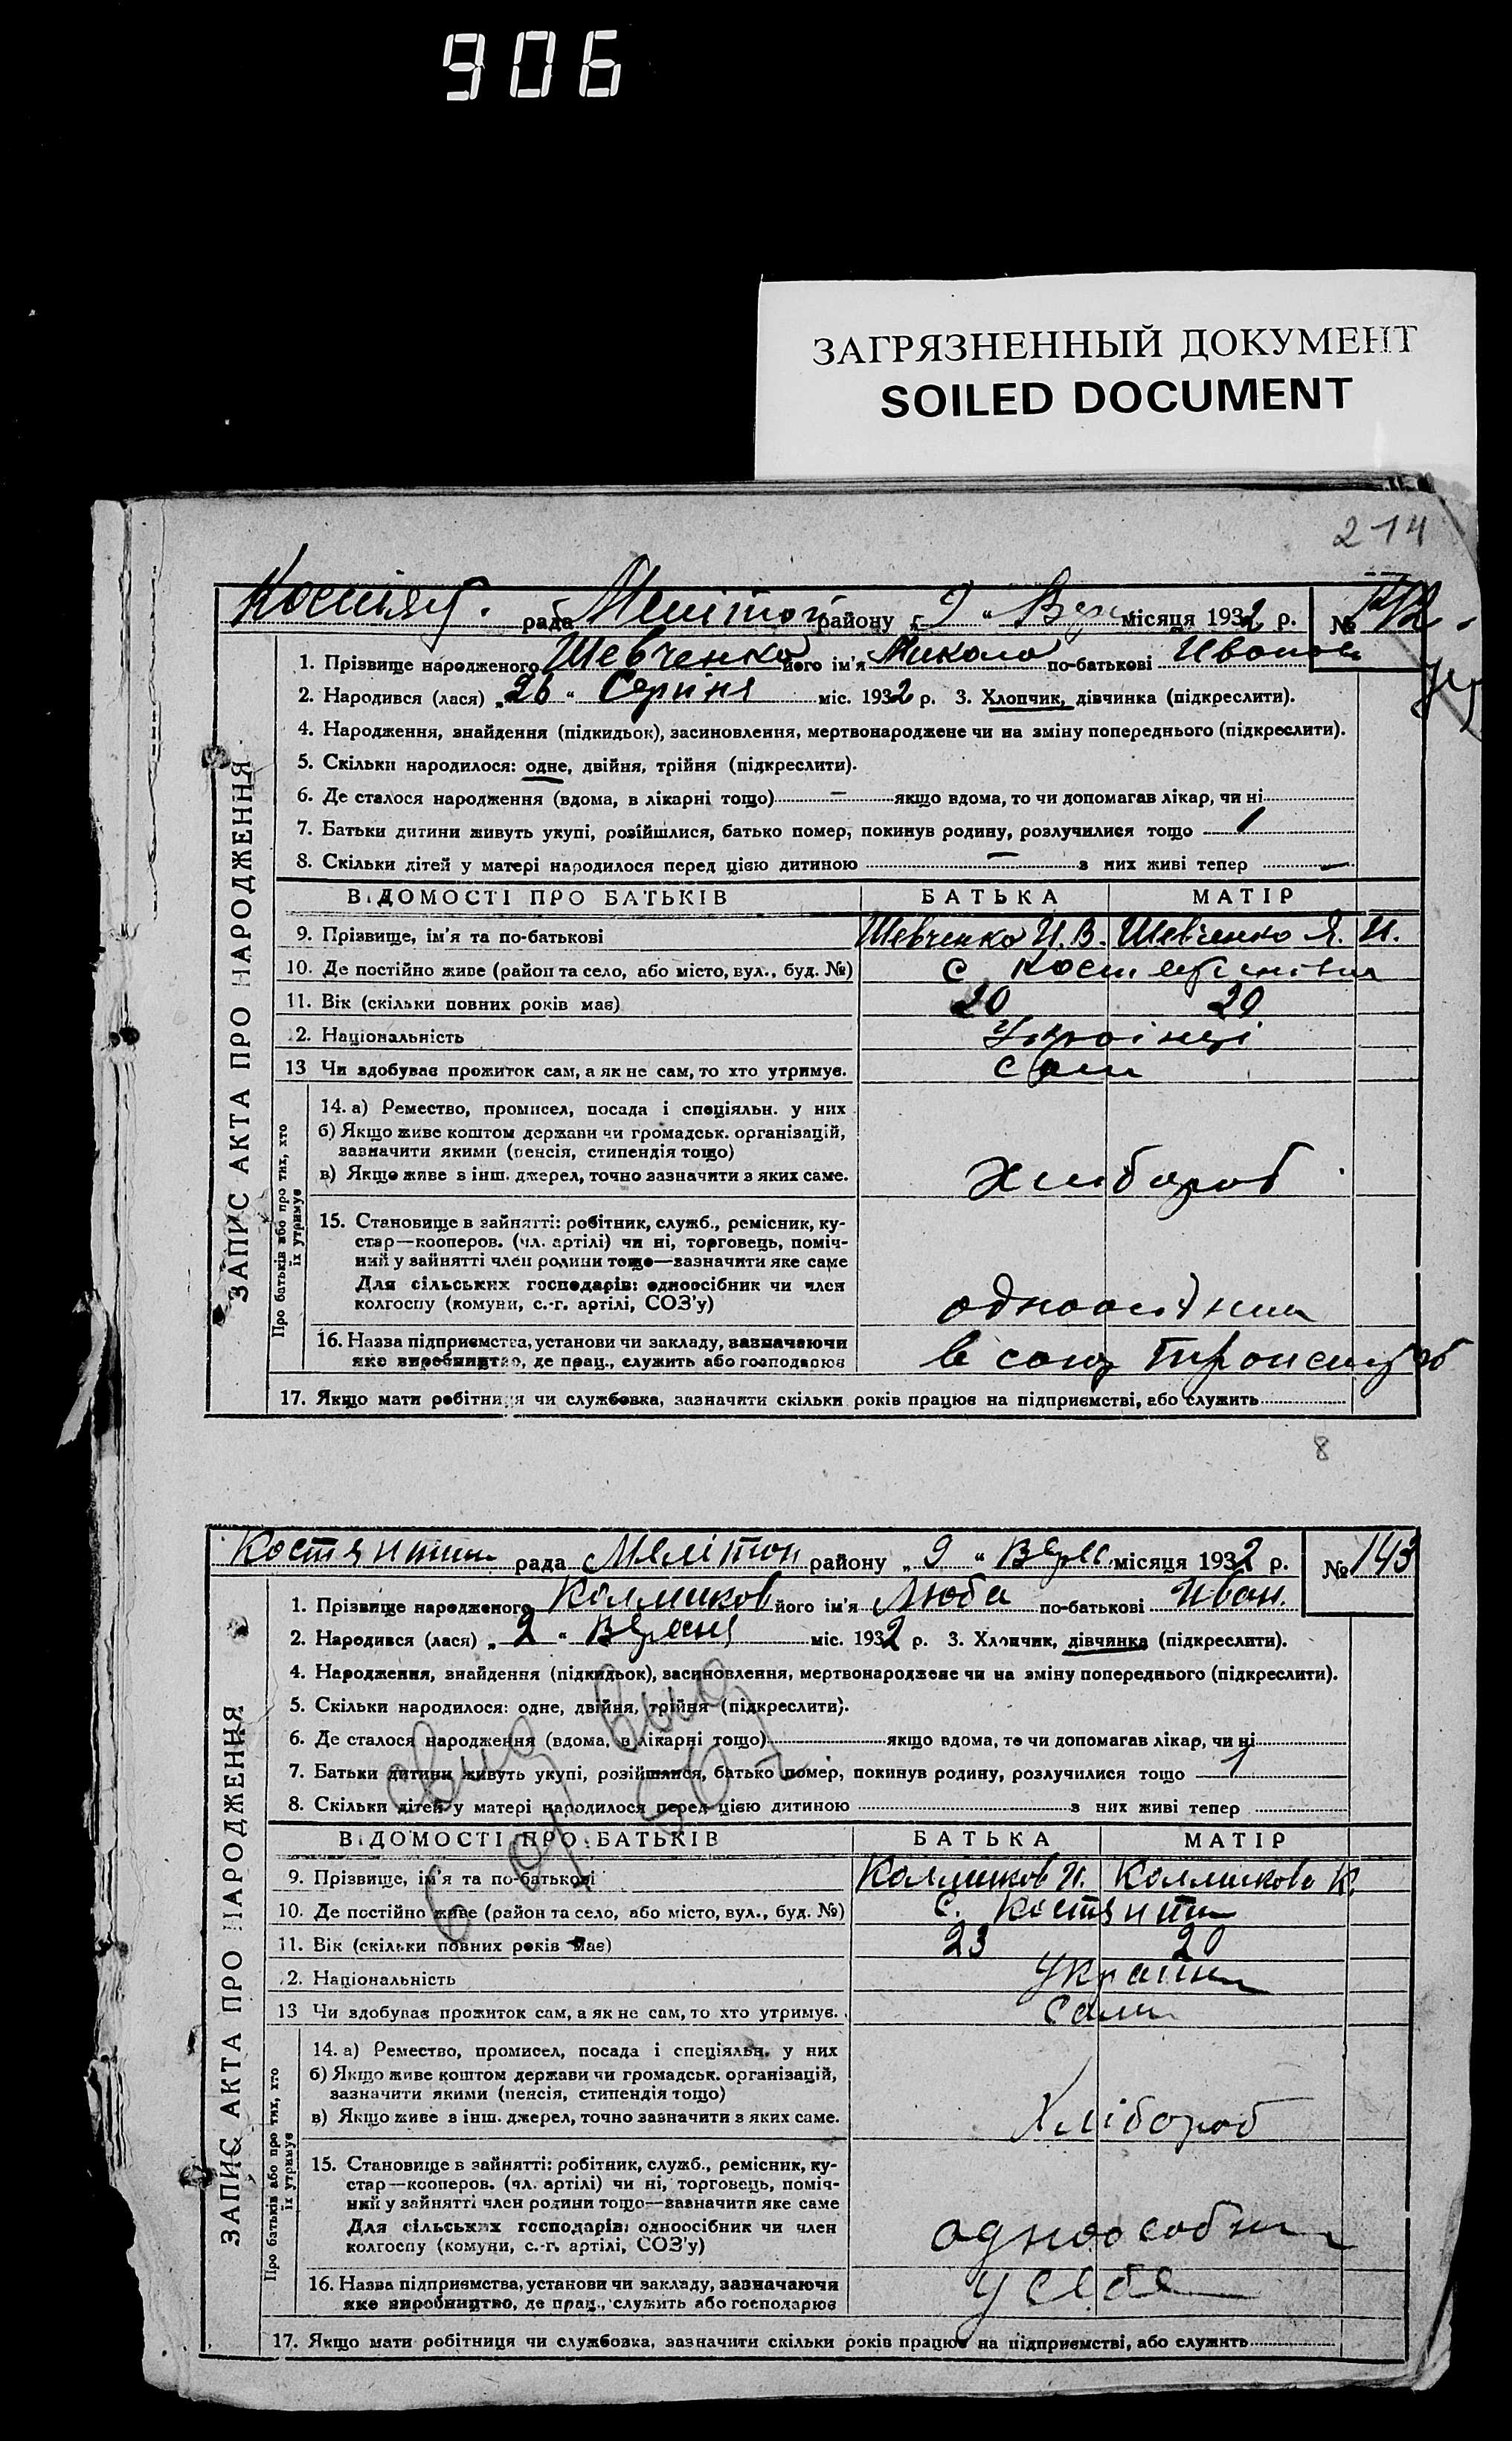 906
ЗАГРЯЗНЕННЫЙ ДОКУМЕНТ
SOILED DOCUMENT
214
рада Меліто району „ 9 “ Вер місяця 1932 р. №
1. Прізвище народженого Шевченко його ім'я Микола по-батькові Иванов
2. Народився (лася) „ 26 “ Серпня міс. 1932 р. 3. Хлопчик, дівчинка (підкреслити).
4. Народження, знайдення (підкидьок), засиновлення, мертвонароджене чи на зміну попереднього (підкреслити).
5. Скільки народилося: одне, двійня, трійня (підкреслити).
6. Де сталося народження (вдома, в лікарні тощо) — якщо вдома, то чи допомагав лікар, чи ні
7. Батьки дитини живуть укупі, розійшлися, батько помер, покинув родину, розлучилися тощо
8. Скільки дітей у матері народилося перед цією дитиною — з них живі тепер —
ВІДОМОСТІ ПРО БАТЬКІВ БАТЬКА МАТІР
9. Прізвище, ім'я та по-батькові Шевченко И. В. Шевченко Я. И.
10. Де постійно живе (район та село, або місто, вул., буд. №) с
11. Вік (скільки повних років має) 20 20
12. Національність Украінці
13 Чи здобуває прожиток сам, а як не сам, то хто утримує. сам
14. а) Ремество, промисел, посада і спеціяльн. у них
б) Якщо живе коштом держави чи громадськ. організацій,
зазначити якими (пенсія, стипендія тощо)
в) Якщо живе з інш. джерел, точно зазначити з яких саме. Хлібороб
15. Становище в зайнятті: робітник, служб., ремісник, ку-
стар—кооперов. (чл. артілі) чи ні, торговець, поміч-
ний у зайнятті член родини тощо—зазначити яке саме
Для сільських господарів: одноосібник чи член
колгоспу (комуни, с.-г. артілі, СОЗ'у)
16. Назва підприємства, установи чи закладу, зазначаючи
яке виробництво, де прац., служить або господарює в
17. Якщо мати робітниця чи службовка, зазначити скільки років працює на підприємстві, або служить
ЗАПИС АКТА ПРО НАРОДЖЕННЯ
Про батьків або про тих, хто
їх утримує
8
рада Мелітоп району „ 9 “ Верес місяця 1932 р. № 143
1. Прізвище народженого Калмиков його ім'я Люба по-батькові Иван.
2. Народився (лася) „ 2 “ міс. 1932 р. 3. Хлопчик, дівчинка (підкреслити).
4. Народження, знайдення (підкидьок), засиновлення, мертвонароджене чи на зміну попереднього (підкреслити).
5. Скільки народилося: одне, двійня, трійня (підкреслити).
6. Де сталося народження (вдома, в лікарні тощо) якщо вдома, то чи допомагав лікар, чи ні
7. Батьки дитини живуть укупі, розійшлися, батько помер, покинув родину, розлучилися тощо
8. Скільки дітей у матері народилося перед цією дитиною з них живі тепер
ВІДОМОСТІ ПРО БАТЬКІВ БАТЬКА МАТІР
9. Прізвище, ім'я та по-батькові Калмиков И. Калмикова К.
10. Де постійно живе (район та село, або місто, вул., буд. №) с.
11. Вік (скільки повних років має) 23 20
12. Національність
13 Чи здобуває прожиток сам, а як не сам, то хто утримує. сами
14. а) Ремество, промисел, посада і спеціяльн. у них
б) Якщо живе коштом держави чи громадськ. організацій,
зазначити якими (пенсія, стипендія тощо)
в) Якщо живе з інш. джерел, точно зазначити з яких саме. Хлібороб
15. Становище в зайнятті: робітник, служб., ремісник, ку-
стар—кооперов. (чл. артілі) чи ні, торговець, поміч-
ний у зайнятті член родини тощо—зазначити яке саме
Для сільських господарів: одноосібник чи член
колгоспу (комуни, с.-г. артілі, СОЗ'у)
16. Назва підприємства, установи чи закладу, зазначаючи
яке виробництво, де прац., служить або господарює у себе
17. Якщо мати робітниця чи службовка, зазначити скільки років працює на підприємстві, або служить
ЗАПИС АКТА ПРО НАРОДЖЕННЯ
Про батьків або про тих, хто
їх утримує